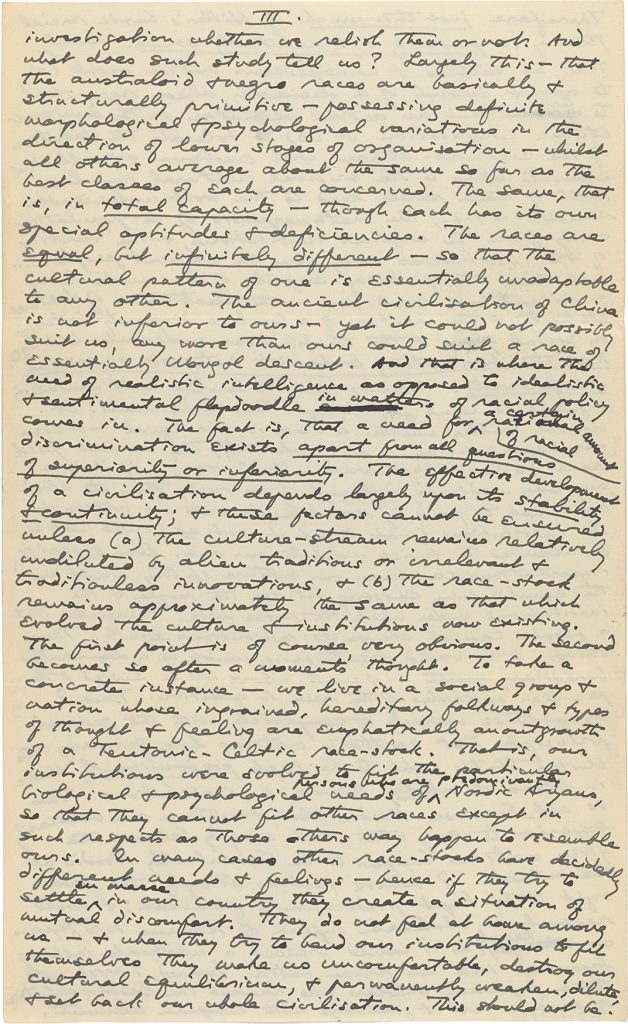 III.
investigation whether we relish them or not. And
what does such study tell us? Largely this—that
the australoid & negro races are basically &
structurally primitive—possessing definite
morphological & psychological variations in the
direction of lower stages of organisation—whilst
all others average about the same so far as the
best classes of each are concerned. The same, that
is, in total capacity—though each has its own
special aptitudes & deficiencies. The races are
equal, but infinitely different—so that the
cultural pattern of one is essentially unadaptable
to any other. The ancient civilisation of China
is not inferior to ours—yet it could not possibly
suit us, any more than ours could suit a race of
essentially Mongol descent. And that is where the
need of realistic intelligence as opposed to idealistic
& sentimental flapdoodle in matters of racial policy
comes in. The fact is, that a need for a certain amount
of racial
discrimination exists apart from all questions
of superiority or inferiority. The effective development
of a civilisation depends largely upon its stability
& continuity; & these factors cannot be ensured
unless (a) the culture-stream remains relatively
undiluted by alien traditions or irrelevant &
traditionless innovations, & (b) the race-stock
remains approximately the same as that which
evolved the culture & institutions now existing.
The first point is of course very obvious. The second
becomes so after a moment's thought. To take a
concrete instance—we live in a social group &
nation whose ingrained, hereditary folkways & types
of thought & feeling are emphatically an outgrowth
of a Teutonic-Celtic race-stock. That is, our
institutions were evolved to fit the particular
biological & psychological needs of persons who are predominantly Nordic Aryans,
so that they cannot fit other races except in
such respects as those others may happen to resemble
ours. In many cases other race-stocks have decidedly
different needs & feelings—hence if they try to
settle en masse in our country they create a situation of
mutual discomfort. They do not feel at home among
us—& when they try to bend our institutions to fit
themselves they make us uncomfortable, destroy our
cultural equilibrium, & permanently weaken, dilute,
& set back our whole civilisation. This should not be.